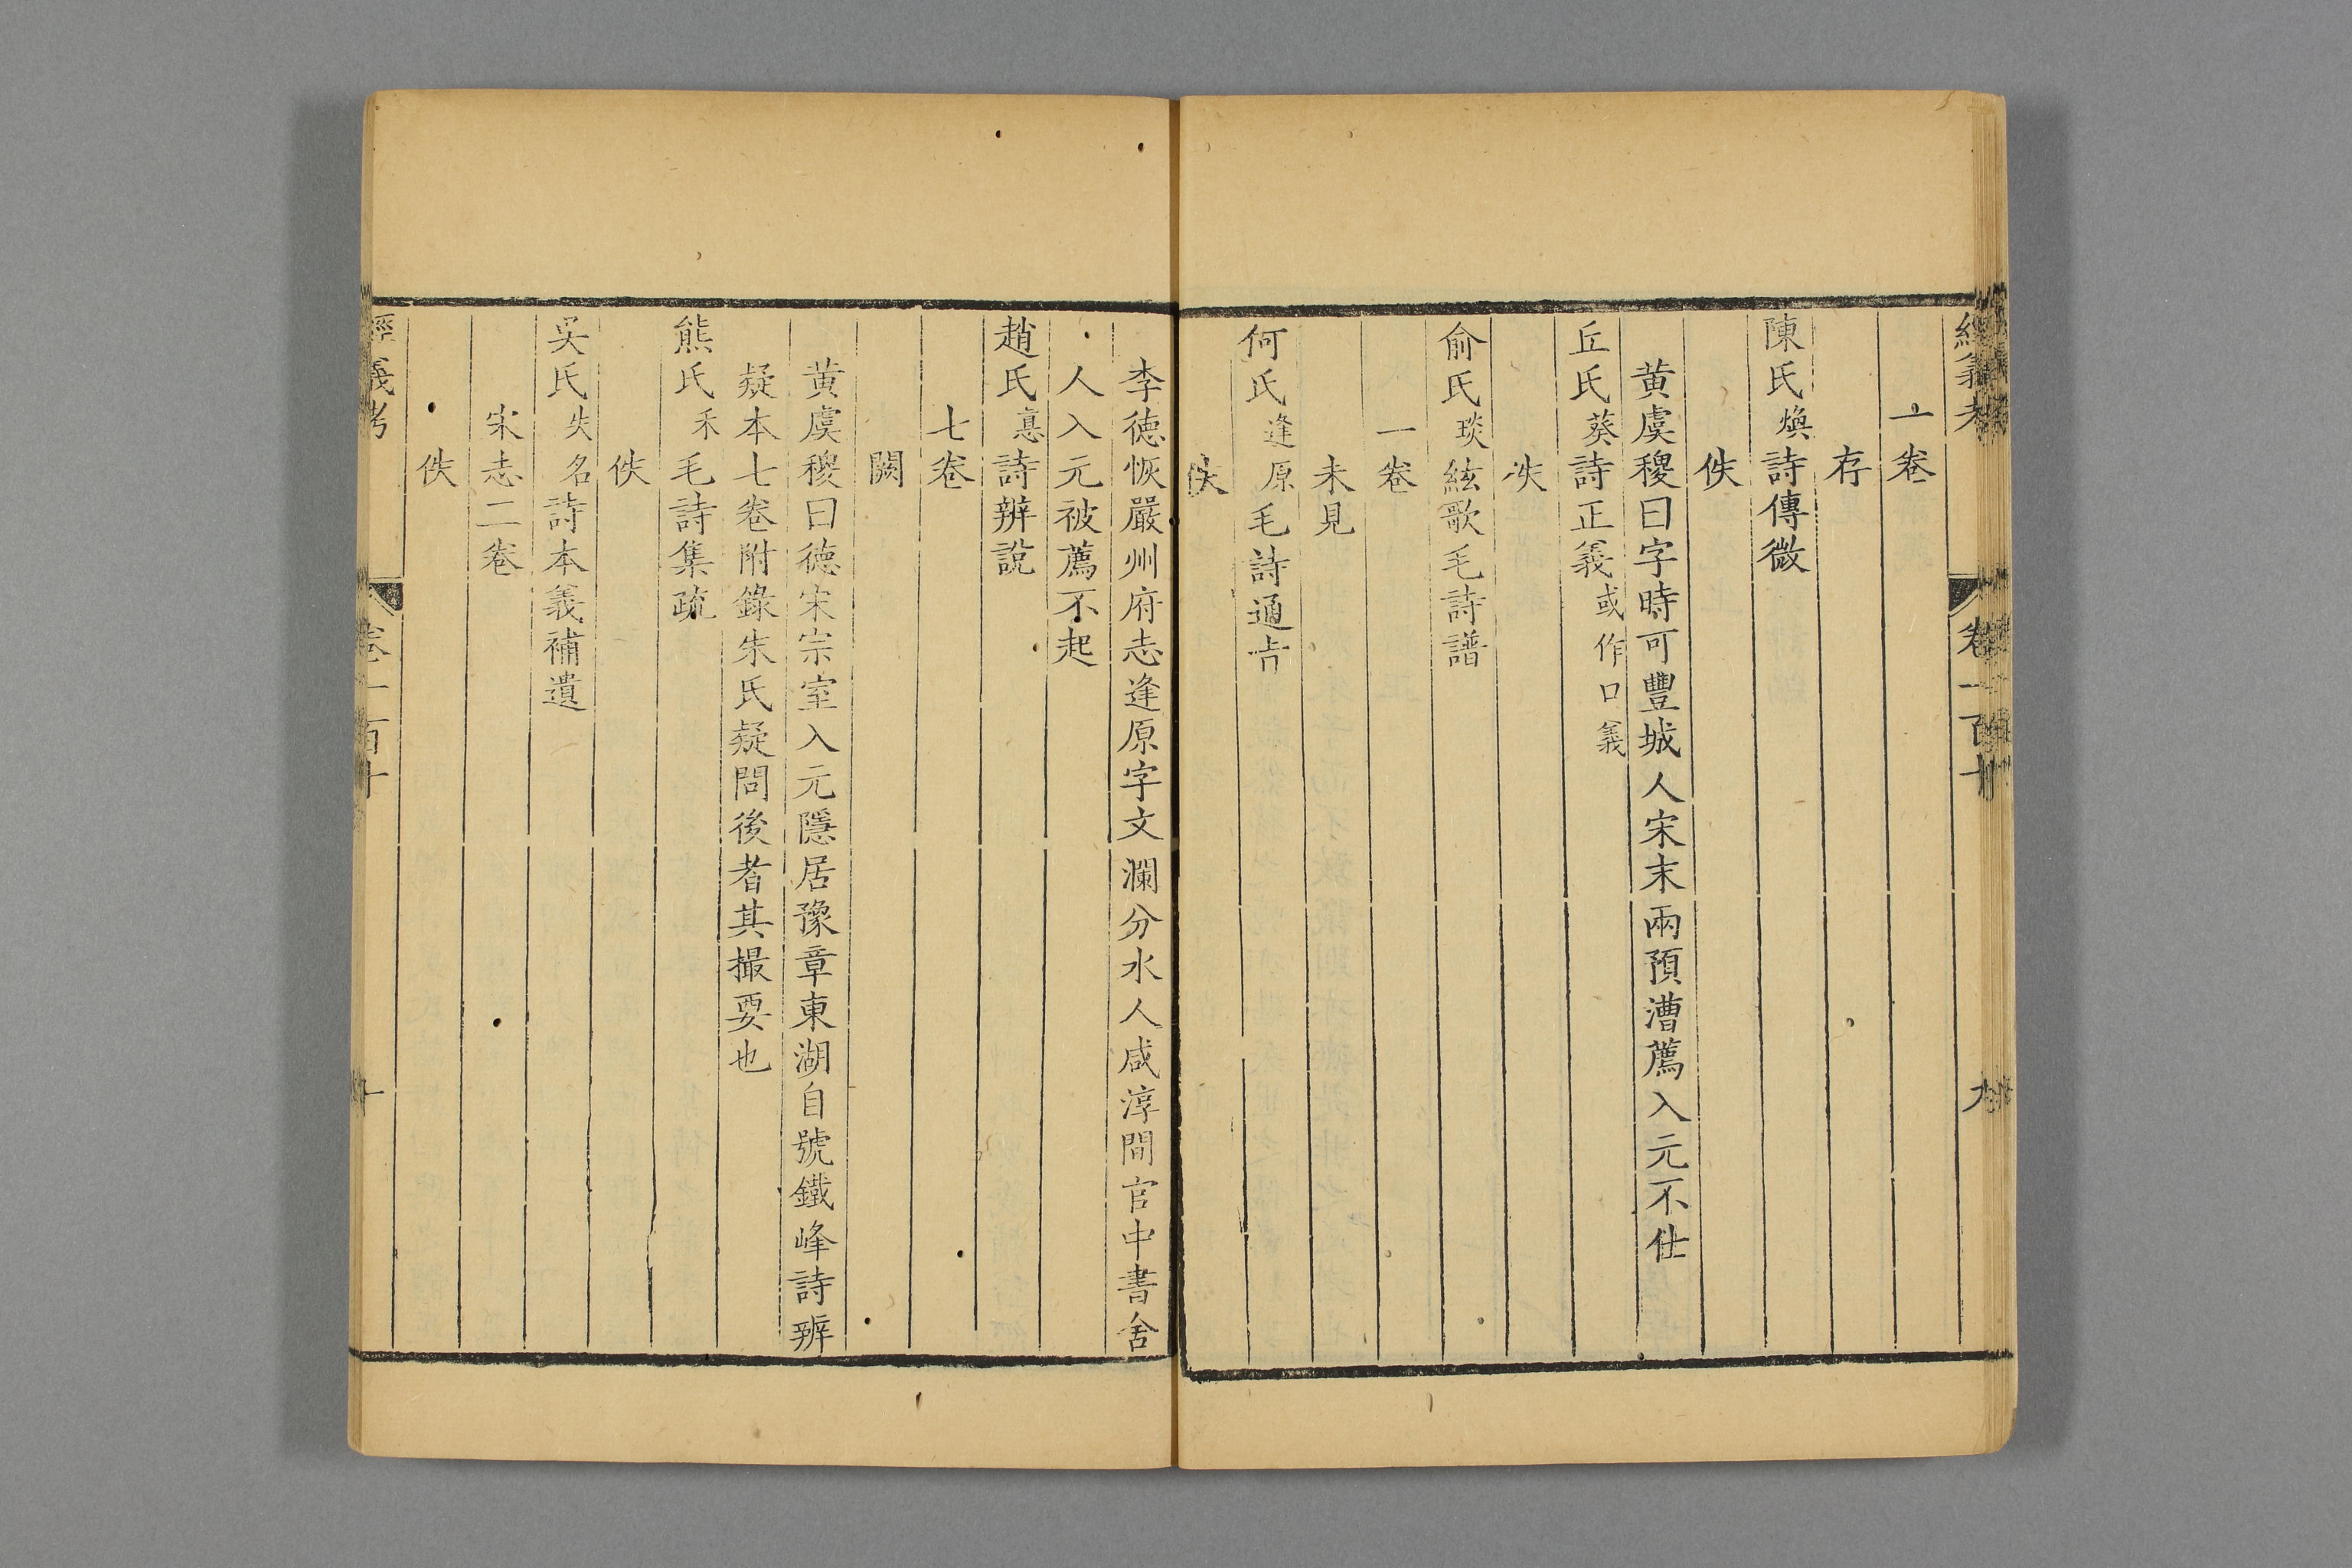 經義考 卷一百十 九
一卷
存
陳氏煥詩傳微
佚
黃虞稷曰字時可豐城人宋末兩預漕薦入元不仕
丘氏葵詩正義或作口義
佚
俞氏琰絃歌毛詩譜
一卷
未見
何氏逢原毛詩通旨
佚
李德恢嚴州府志逢原字文瀾分水人咸淳間官中書舍
人入元被薦不起
趙氏悳詩辨說
七卷
闕
黃虞稷曰德宋宗室入元隱居豫章東湖自號鐵峰詩辨
疑本七卷附錄朱氏疑問後者其撮要也
熊氏禾毛詩集疏
佚
吳氏失名詩本義補遺
宋志二卷
佚
經義考 卷一百十 十